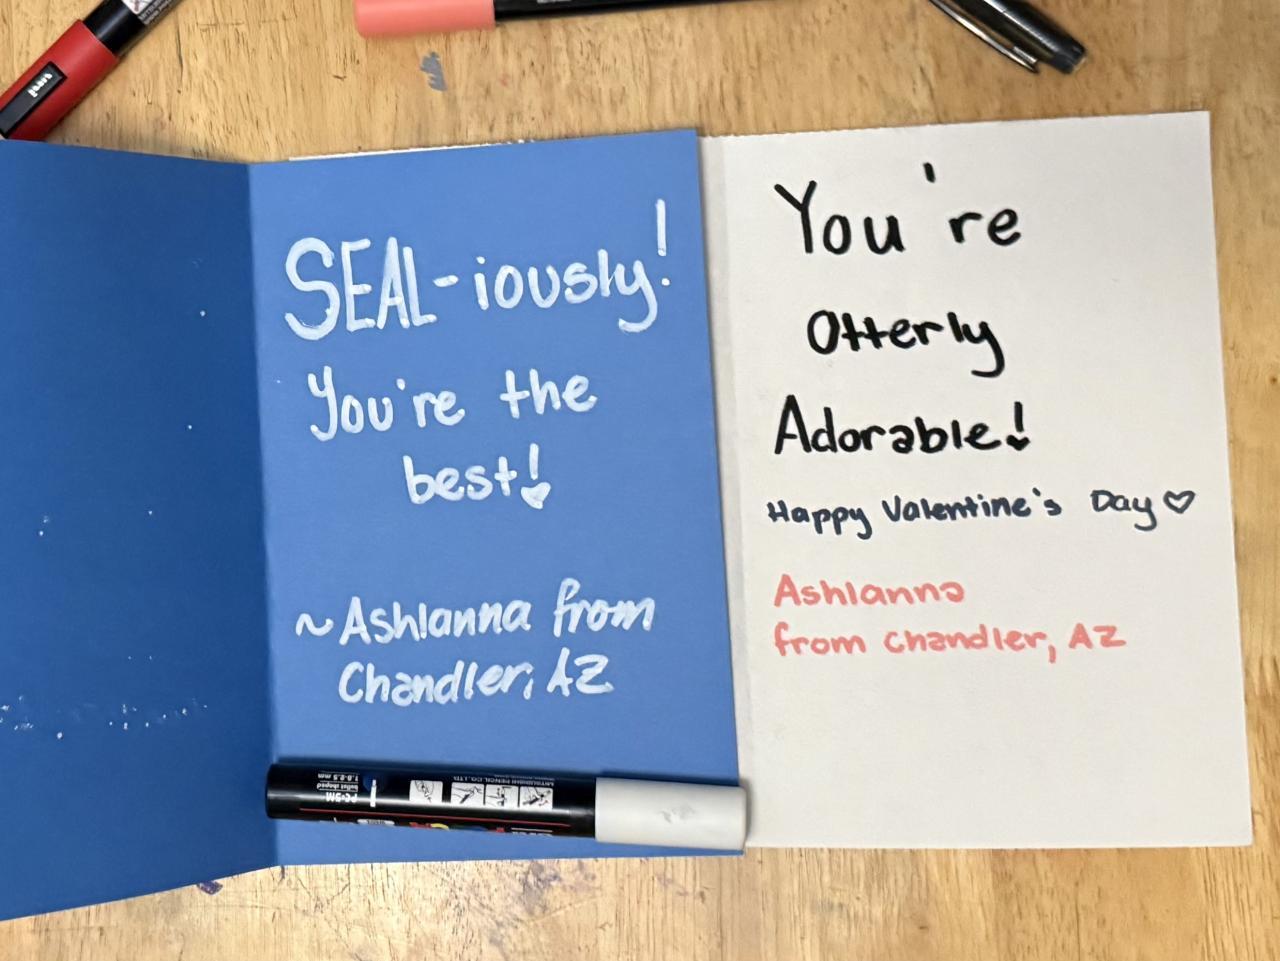 SEAL-iously!
You're the
best!
~Ashlanna from
Chandler, AZ
You're
Otterly
Adorable!
Happy Valentine's Day
Ashlanna
from Chandler, AZ
uni
PC-5M
bullet shaped
1.8-2.5 mm
MITSUBISHI PENCIL CO., LTD.